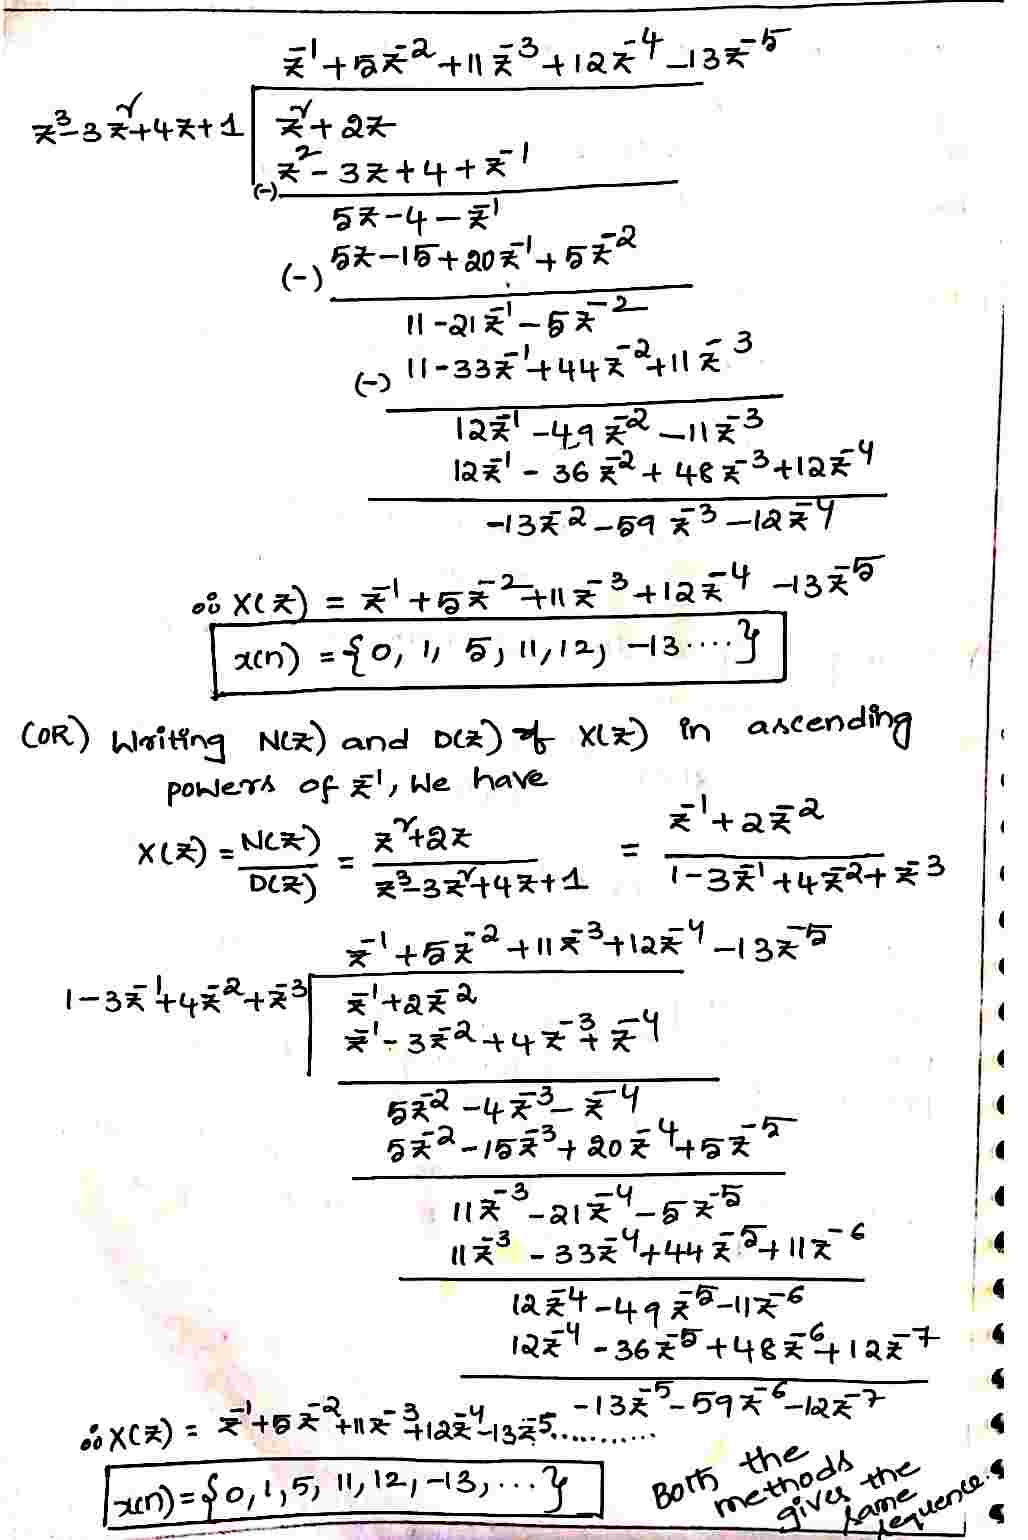 z⁻¹ + 5z⁻² + 11z⁻³ + 12z⁻⁴ - 13z⁻⁵
z³ - 3z² + 4z + 1 | z² + 2z
z² - 3z + 4 + z⁻¹
(-)
5z - 4 - z⁻¹
(-) 5z - 15 + 20z⁻¹ + 5z⁻²
11 - 21z⁻¹ - 5z⁻²
(-) 11 - 33z⁻¹ + 44z⁻² + 11z⁻³
12z⁻¹ - 49z⁻² - 11z⁻³
12z⁻¹ - 36z⁻² + 48z⁻³ + 12z⁻⁴
-13z⁻² - 59z⁻³ - 12z⁻⁴
∴ X(z) = z⁻¹ + 5z⁻² + 11z⁻³ + 12z⁻⁴ - 13z⁻⁵
x(n) = {0, 1, 5, 11, 12, -13 ....}
(OR) Writing N(z) and D(z) of X(z) in ascending
powers of z⁻¹, We have
X(z) = N(z)/D(z) = (z² + 2z)/(z³ - 3z² + 4z + 1) = (z⁻¹ + 2z⁻²)/(1 - 3z⁻¹ + 4z⁻² + z⁻³)
z⁻¹ + 5z⁻² + 11z⁻³ + 12z⁻⁴ - 13z⁻⁵
1 - 3z⁻¹ + 4z⁻² + z⁻³ | z⁻¹ + 2z⁻²
z⁻¹ - 3z⁻² + 4z⁻³ + z⁻⁴
5z⁻² - 4z⁻³ - z⁻⁴
5z⁻² - 15z⁻³ + 20z⁻⁴ + 5z⁻⁵
11z⁻³ - 21z⁻⁴ - 5z⁻⁵
11z⁻³ - 33z⁻⁴ + 44z⁻⁵ + 11z⁻⁶
12z⁻⁴ - 49z⁻⁵ - 11z⁻⁶
12z⁻⁴ - 36z⁻⁵ + 48z⁻⁶ + 12z⁻⁷
-13z⁻⁵ - 59z⁻⁶ - 12z⁻⁷
∴ X(z) = z⁻¹ + 5z⁻² + 11z⁻³ + 12z⁻⁴ - 13z⁻⁵...........
x(n) = {0, 1, 5, 11, 12, -13, ...}
Both the
methods
gives the
same
sequence.